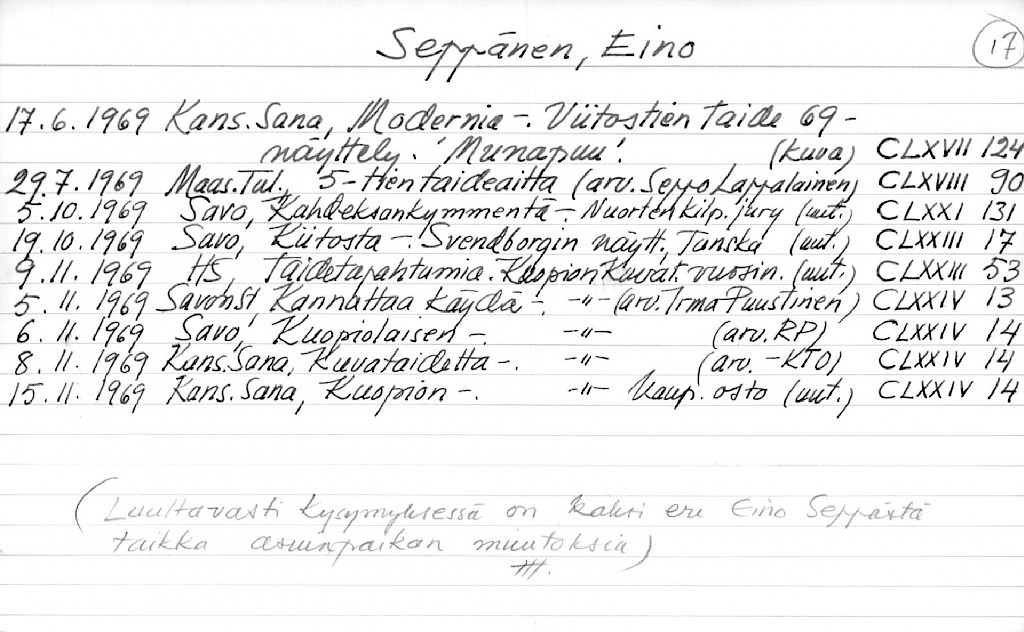 Seppänen, Eino 17
17.6.1969 Kans.Sana, Modernia -. Viitostien taide 69 -
näyttely. 'Munapuu'. (kuva) CLXVII 124
29.7.1969 Maas.Tul., 5-tien taideaitta (arv. Seppo Lappalainen) CLXVIII 90
5.10.1969 Savo, Kahdeksankymmentä -. Nuorten kilp. jury (uut.) CLXXI 131
19.10.1969 Savo, Kiitosta -. Svendborgin näytt., Tanska (uut.) CLXXIII 17
9.11.1969 HS, Taidetapahtumia. Kuopion Kuvat. vuosin. (uut.) CLXXIII 53
5.11.1969 Savonst, Kannattaa käydä -. -"- (arv. Irma Puustinen) CLXXIV 13
6.11.1969 Savo, Kuopiolaisen -. -"- (arv. RP) CLXXIV 14
8.11.1969 Kans.Sana, Kuvataidetta -. -"- (arv. -KTO) CLXXIV 14
15.11.1969 Kans.Sana, Kuopion -. -"- Kaup. osto (uut.) CLXXIV 14
(Luultavasti kysymyksessä on kaksi eri Eino Seppästä
taikka asuinpaikan muutoksia)